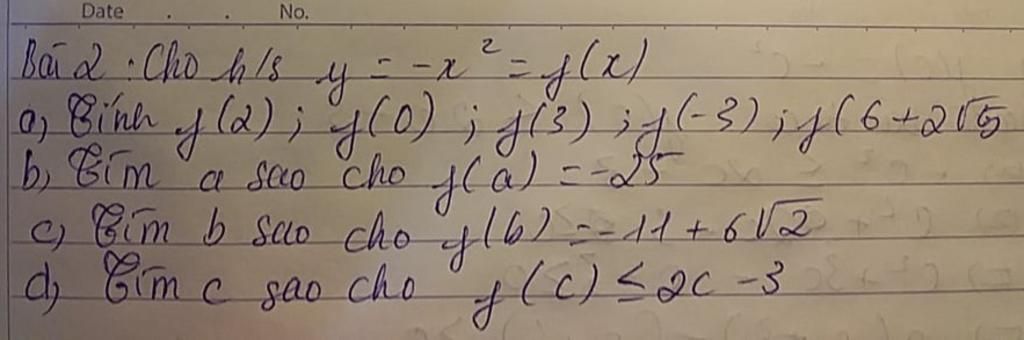 Date . . No.
Bài 2 : Cho h/s y = -x² = f(x)
a, Tính f(2) ; f(0) ; f(3) ; f(-3) ; f(6+2√5
b, Tìm a sao cho f(a) = -25
c, Tìm b sao cho f(b) = -11 + 6√2
d, Tìm c sao cho f(c) ≤ 2c - 3